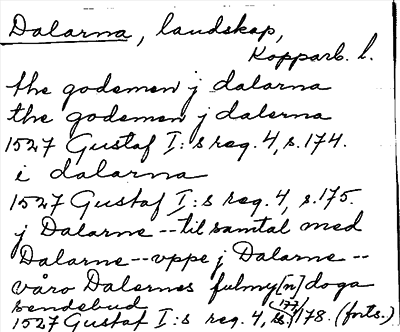 Dalarna, landskap,
Kopparb. l.
the godemen j dalarna
the godemen j dalerna
1527 Gustaf I:s reg. 4, s. 174.
i dalarna
1527 Gustaf I:s reg. 4, s. 175.
j Dalarne -- til samtal med
Dalarne -- vppe j Dalarne --
våro Dalernes fulmy[n]doga
sendebud
1527 Gustaf I:s reg. 4, s. 177, 178. (forts.)